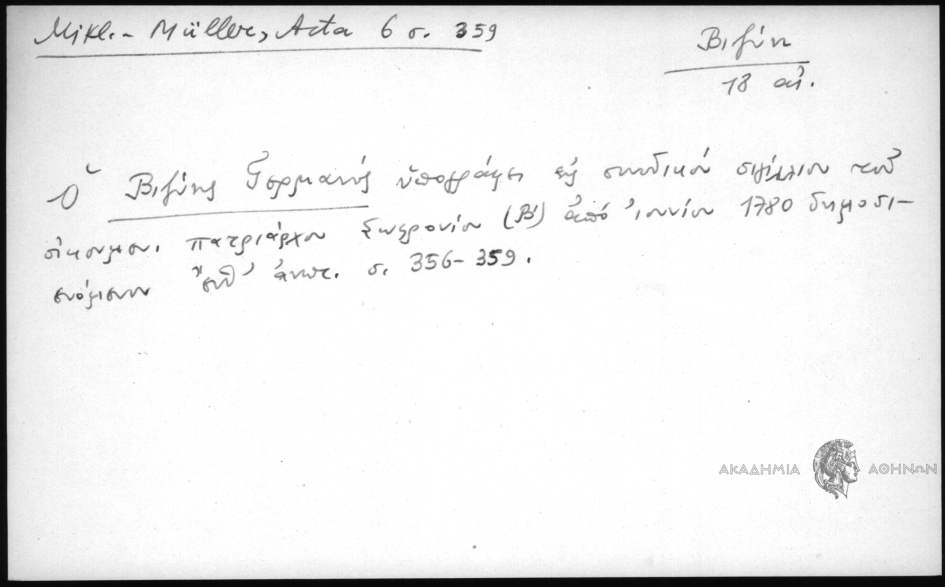 Mikl. - Müller, Acta 6 σ. 359
Βιζύη
18 αἰ.
Ὁ Βιζύης Γερμανός ὑπογράφει εἰς συνοδικόν σιγίλλιον τοῦ
οἰκουμεν. πατριάρχου Σωφρονίου (Β') ἀπό ἰουνίου 1780 δημοσι-
ευόμενον σ. 356-359.
ΑΚΑΔΗΜΙΑ ΑΘΗΝΩΝ